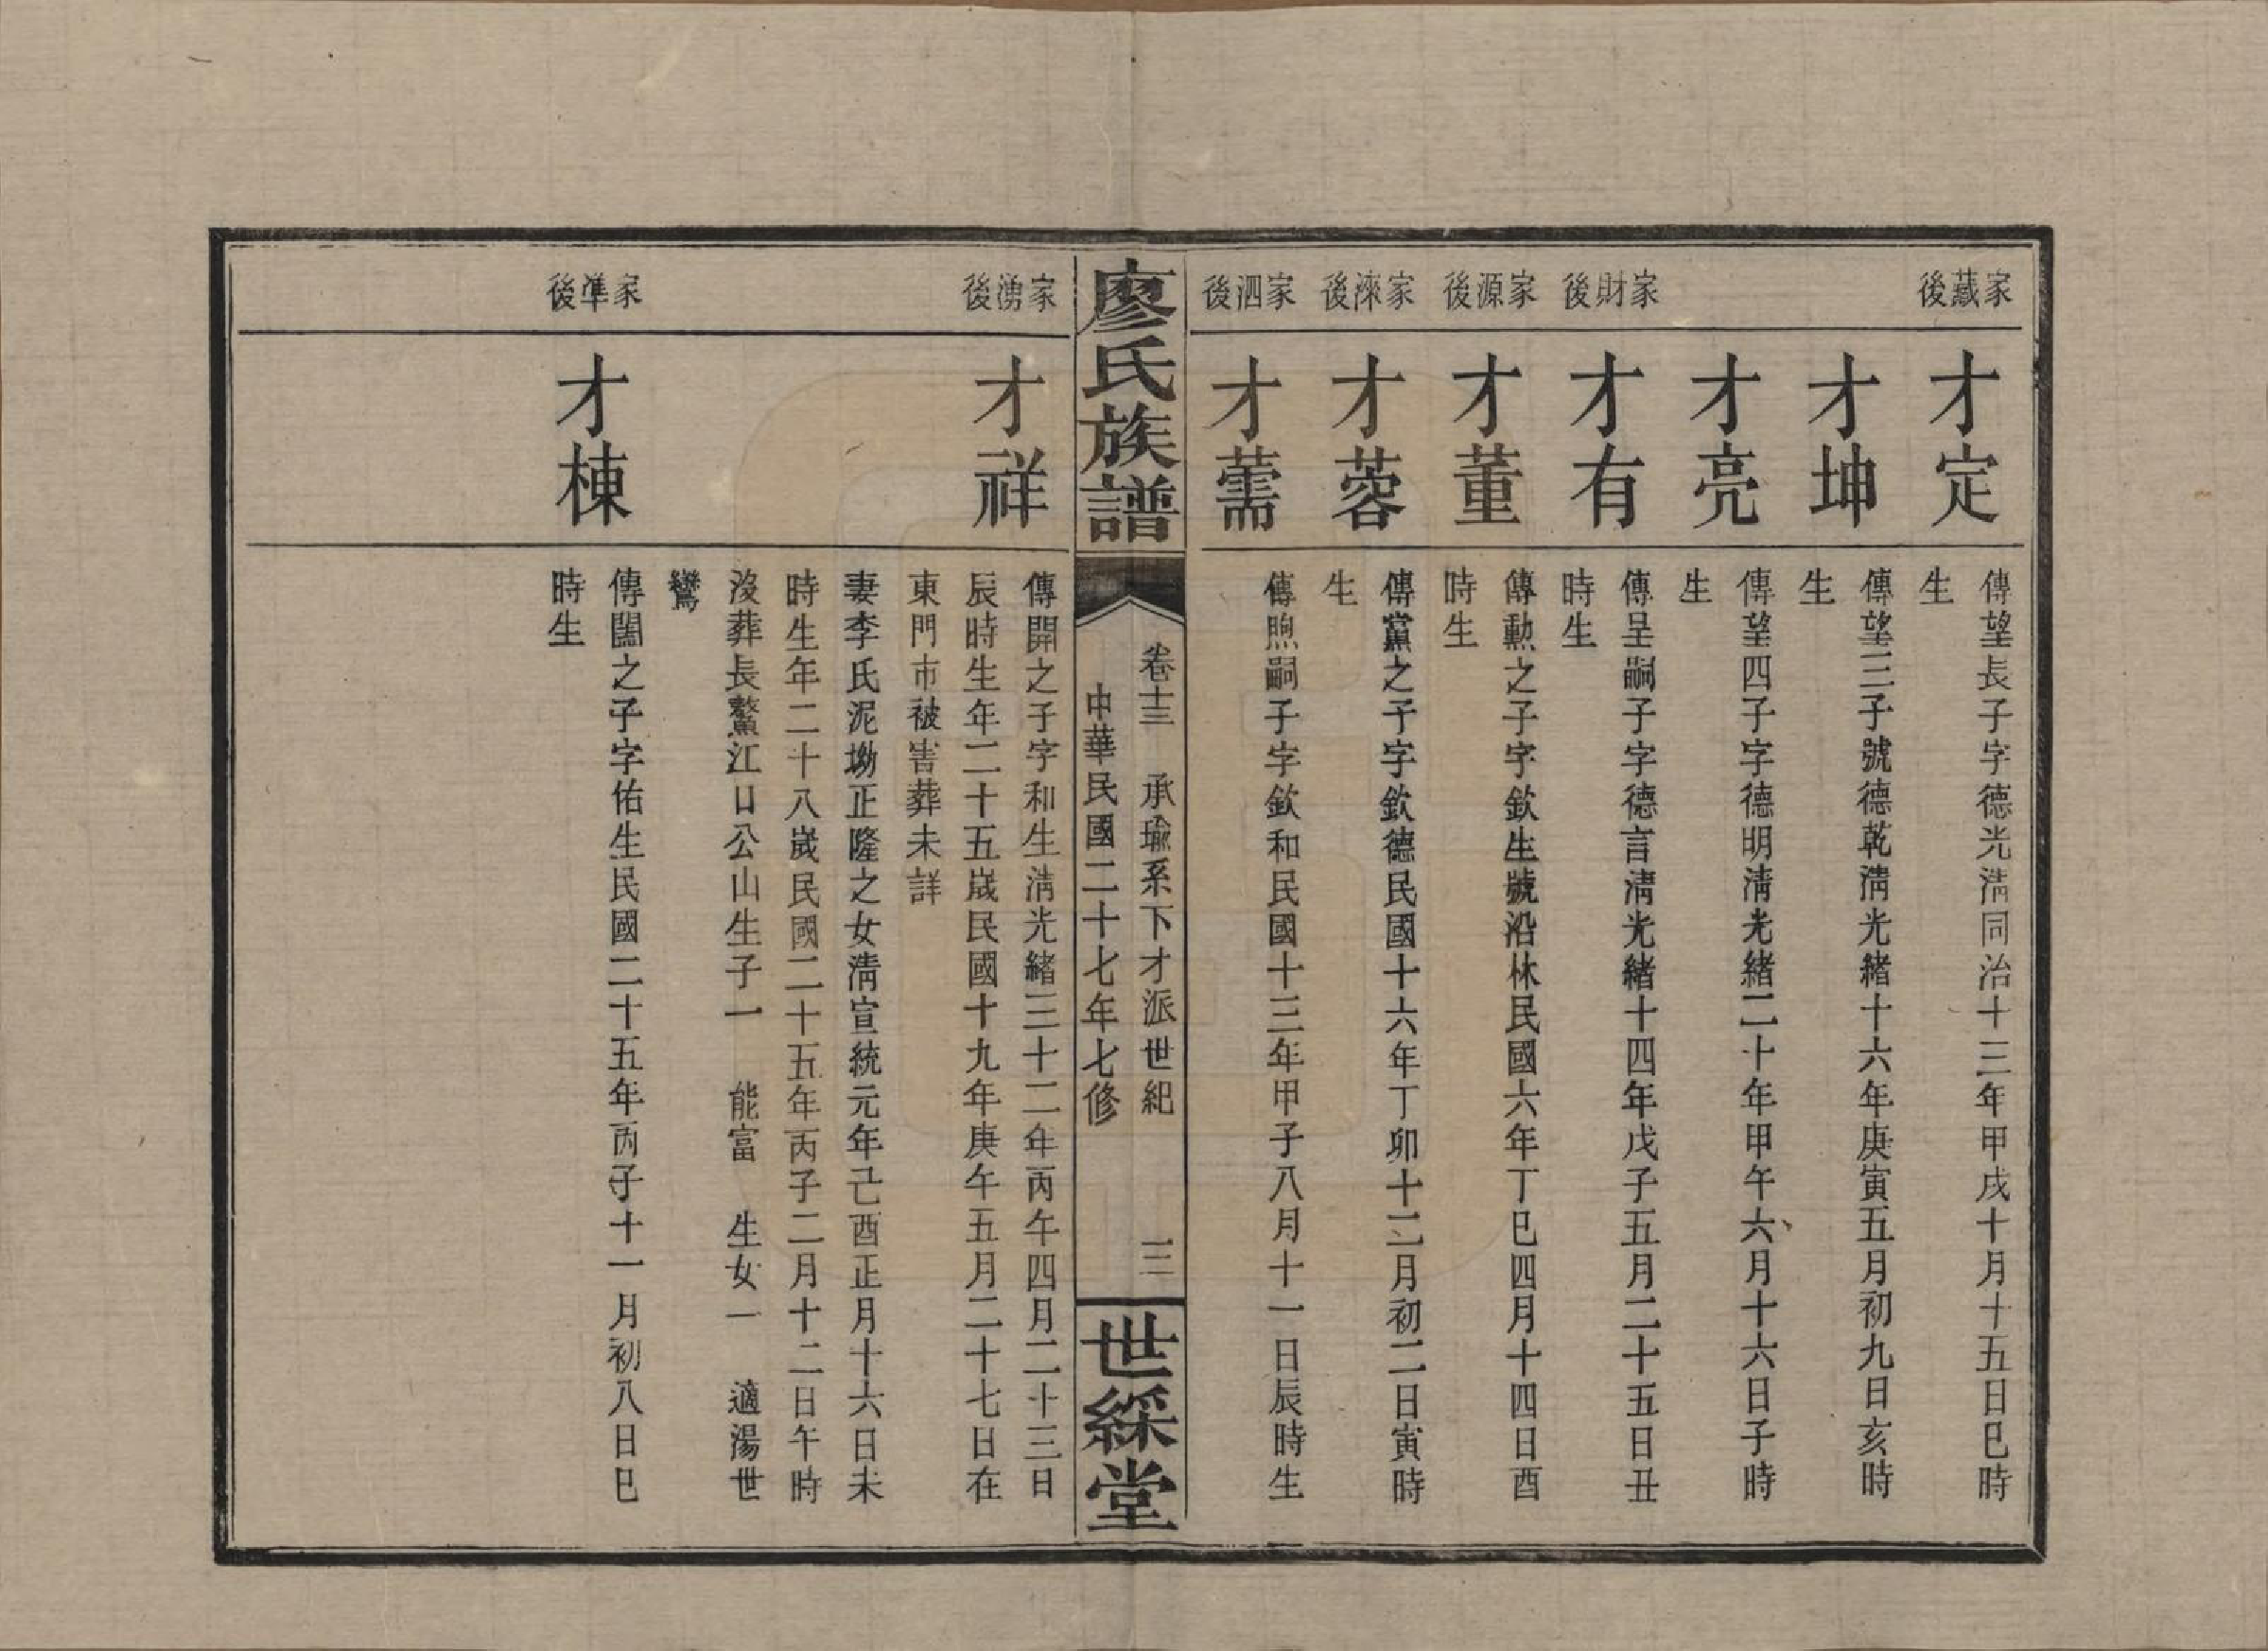 家藏後
才定
傳望長子字德光淸同治十三年甲戌十月十五日巳時
生
才坤
傳望三子號德乾淸光緒十六年庚寅五月初九日亥時
生
才亮
傳望四子字德明淸光緒二十年甲午六月十六日子時
生
家財後
才有
傳呈嗣子字德言淸光緒十四年戊子五月二十五日丑
時生
家源後
才董
傳勳之子字欽生號沿林民國六年丁巳四月十四日酉
時生
家淶後
才蓉
傳黨之子字欽德民國十六年丁卯十二月初二日寅時
生
家泗後
才薷
傳煦嗣子字欽和民國十三年甲子八月十一日辰時生
廖氏族譜
卷十三 承瑜系下才派世紀 三
中華民國二十七年七修
世綵堂
家湧後
才祥
傳開之子字和生淸光緒三十二年丙午四月二十三日
辰時生年二十五歲民國十九年庚午五月二十七日在
東門市被害葬未詳
妻李氏泥坳正隆之女淸宣統元年己酉正月十六日未
時生年二十八歲民國二十五年丙子二月十二日午時
沒葬長鰲江口公山生子一 能富 生女一 適湯世
鸞
家準後
才棟
傳闓之子字佑生民國二十五年丙子十一月初八日巳
時生